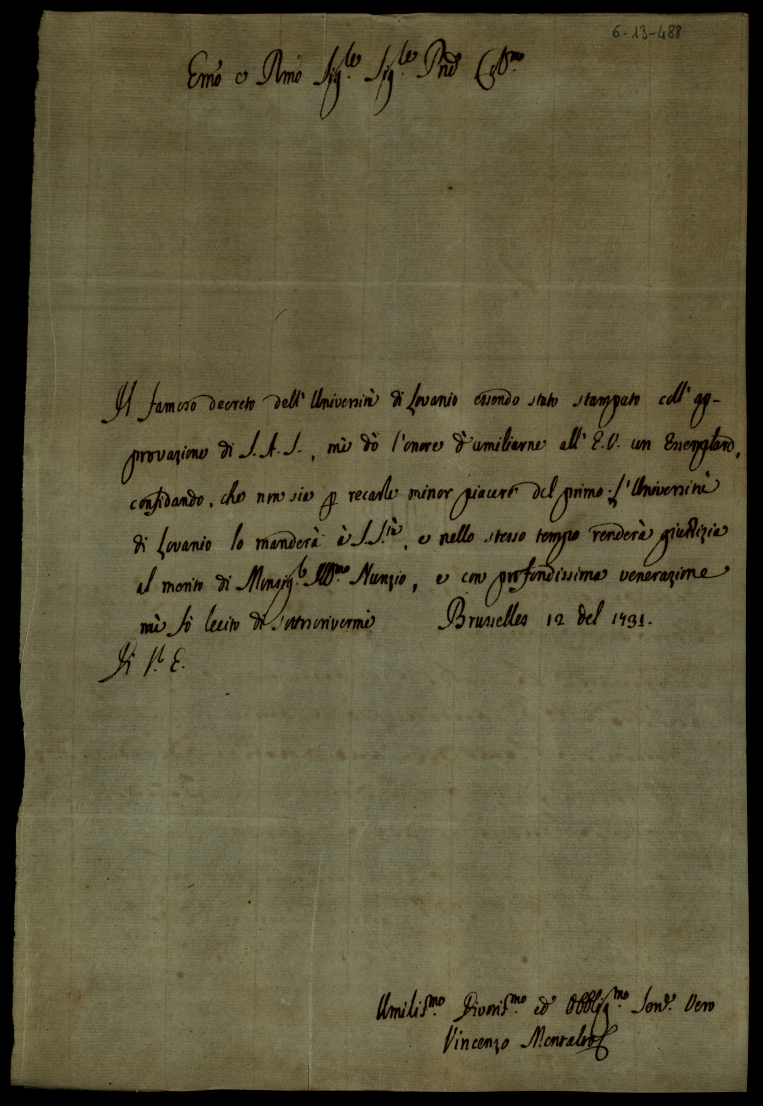 6-13-488
Emō e Rmō Sig.le Sig.le Pnē Col.mo
Il famoso decreto dell' Università di Lovanio essendo stato stampato coll' ap-
provazione di S. A. S., mi dò l'onore d'umiliarne all' E. V. un Essemplare,
confidando, che non sia p recarle minor piacere del primo. L'Università
di Lovanio lo manderà à S. S.tà, e nello stesso tempo renderà giustizia
al merito di Monsig.le Ill.mo Nunzio, e con profondissima venerazione
mi fò lecito di sottoscrivermi Brusselles 12 del 1731.
Di V. E.
Umilis.mo Divotis.mo ed Obblig.mo Serv.e Vero
Vincenzo Montalto